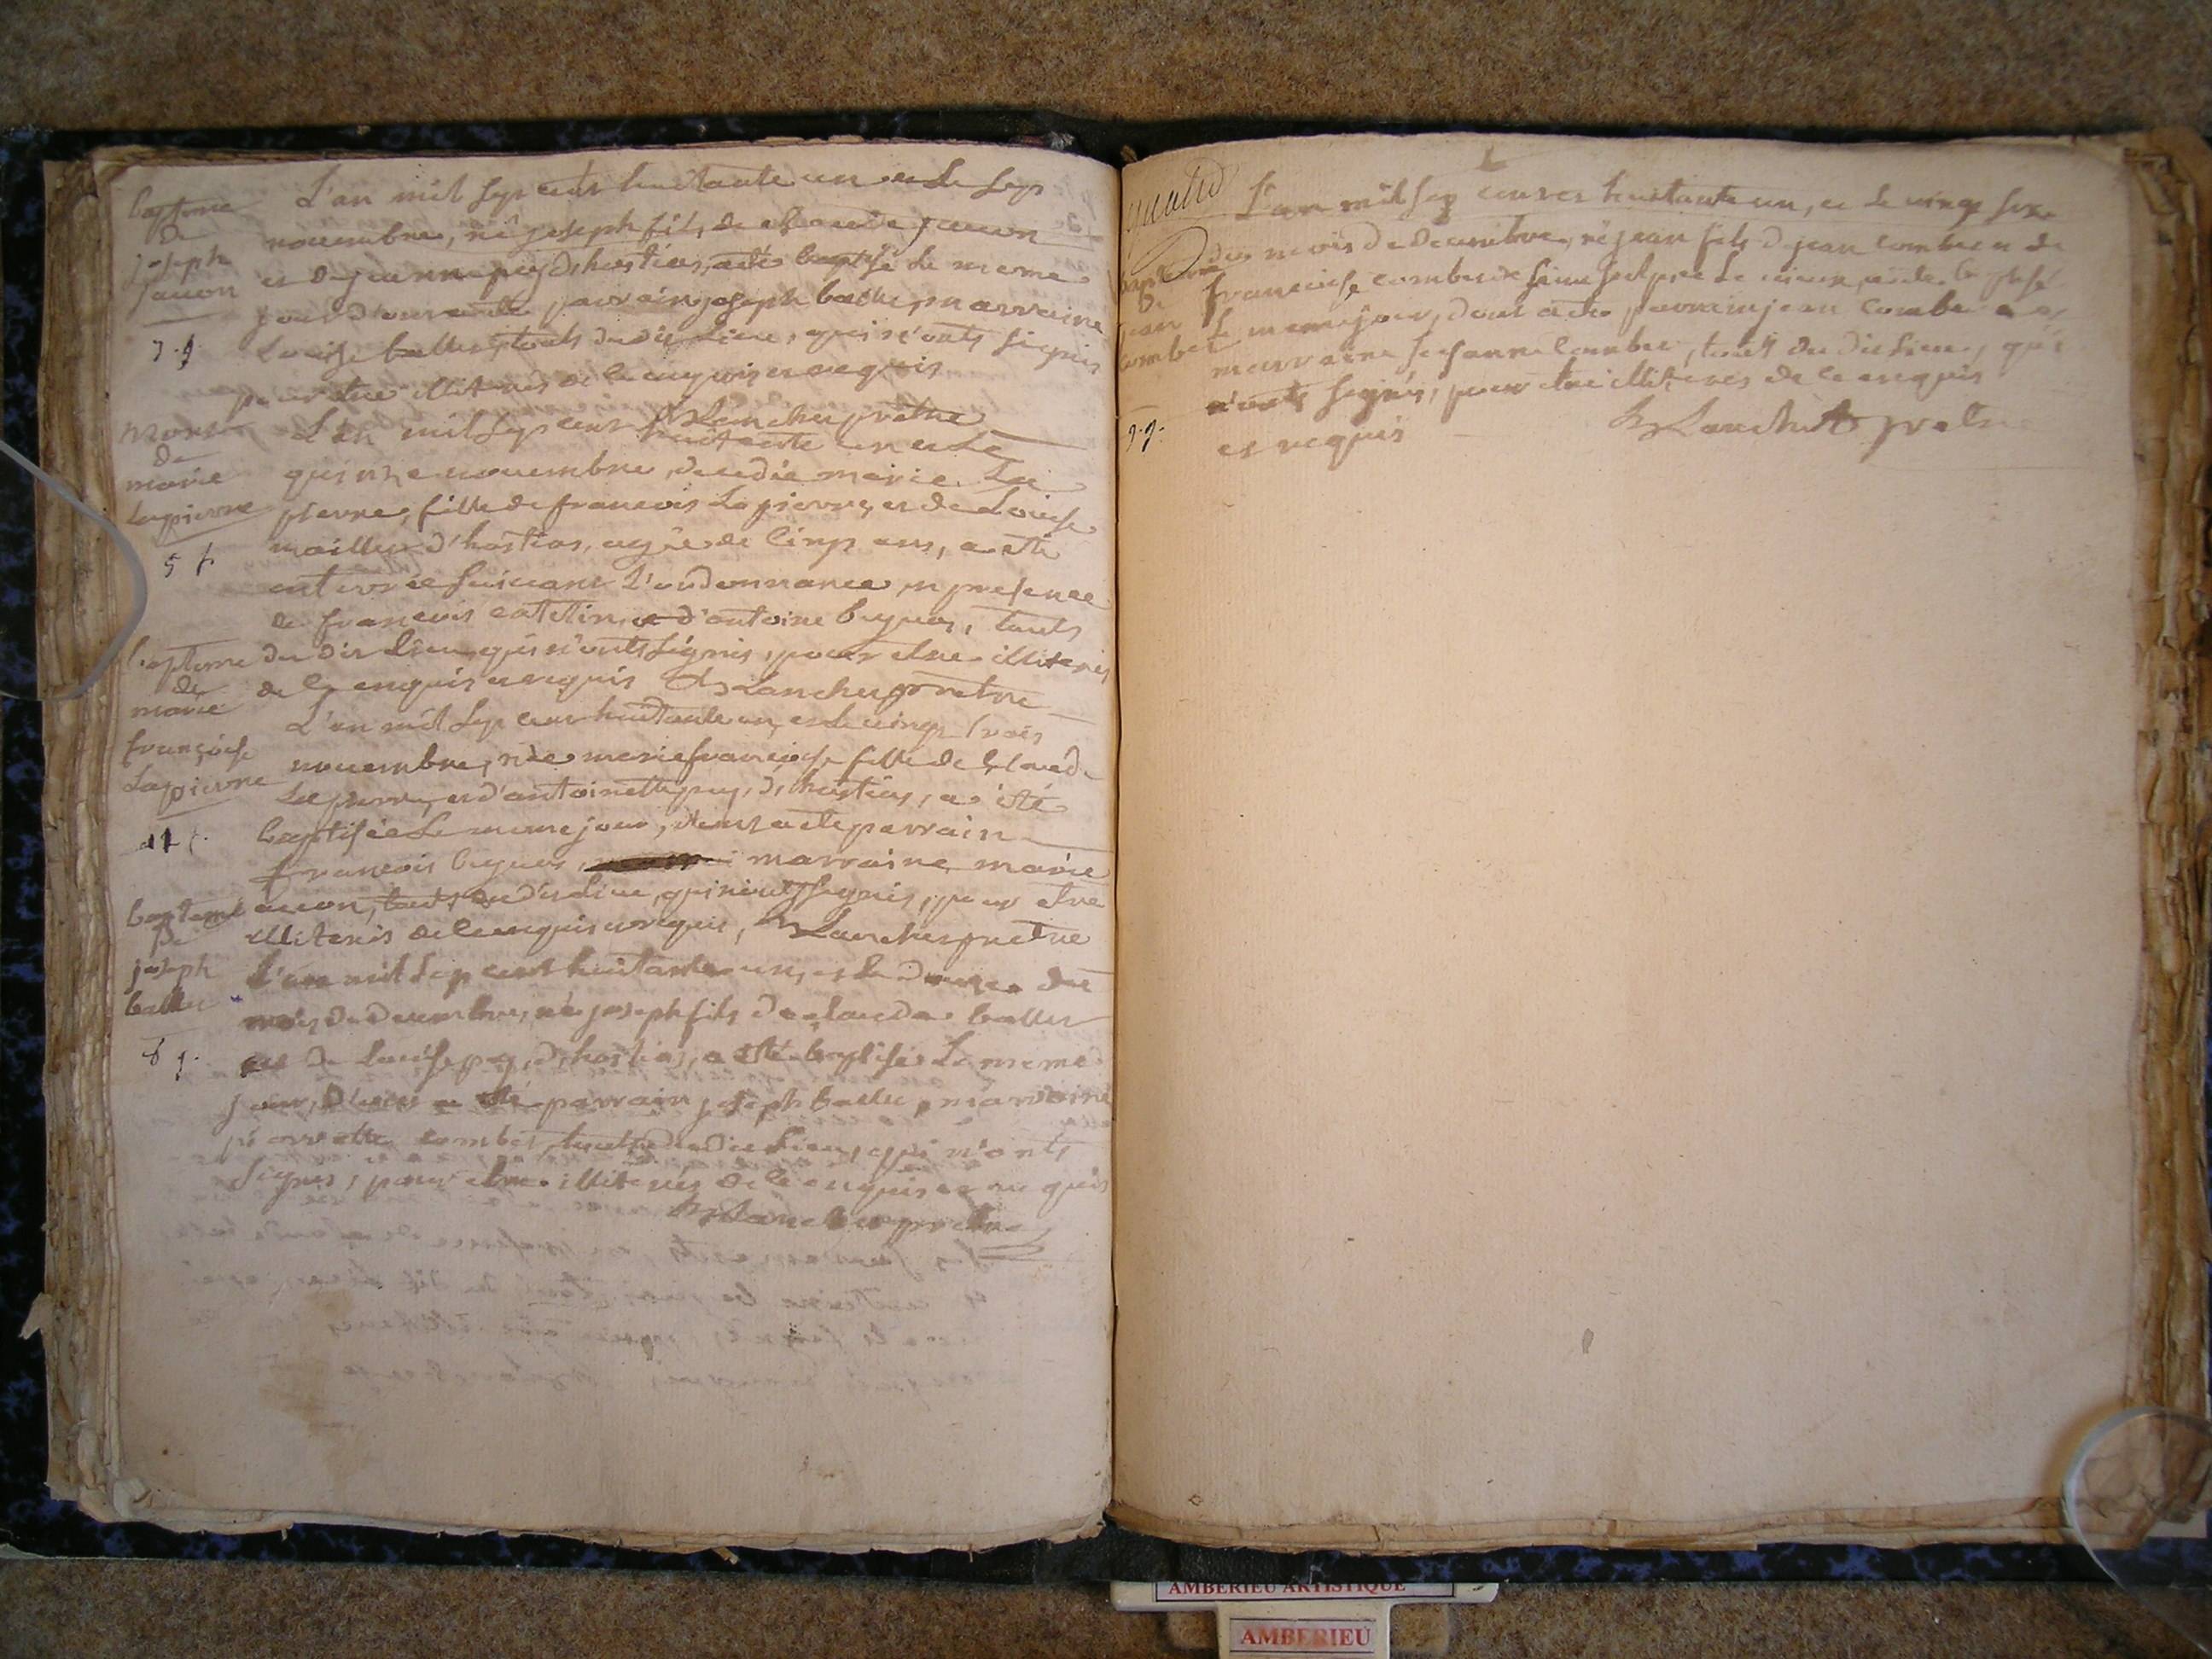 bapteme
de
joseph
jaccon
7. g.
L'an mil sept cents huitante un et le sept
novembre, né joseph fils de claude jaccon
et de jeanne puy d'hostias, a été baptisé le meme
jour, dont a été parrain joseph ballet, marraine
Louise ballet, touts du dit Lieu, qui n'onts signés
pour etre illiterés de ce enquis et requis
Blanchet pretre
mort
de
marie
Lapierre
5 f.
L'an mil sept cent huitante un et le
quinze novembre, decedée marie La
pierre, fille de francois Lapierre, et de Louise
maillet d'hostias, agée de cinq ans, a été
enterrée suivant L'ordonnance, en presence
de francois catelin, et d'antoine buguet, touts
du dit Lieu, qui n'onts signés, pour etre illiterés
de ce enquis et requis Blanchet pretre
bapteme
de
marie
françoise
Lapierre
11 f.
L'an mil sept cent huitante un, et le vingt trois
novembre, née marie françoise fille de claude
Lapierre, et d'antoinette puy, d'hostias, a été
baptisée Le meme jour, dont a été parrain
francois buguet, marraine marie
accon, touts du dit Lieu, qui n'onts signés, pour etre
illiterés de ce enquis et requis, Blanchet pretre
bapteme
de
joseph
ballet
8 g.
L'an mil sept cent huitante un, et le douze du
mois de decembre, né joseph fils de claude ballet
et de Louise puy, d'hostias, a été baptisé Le meme
jour, dont a été parrain joseph ballet, marraine
pierrette combet, touts du dit Lieu, qui n'onts
signés, pour etre illiterés de ce enquis et requis
Blanchet pretre
bapteme
de
jean
combet
9. g.
L'an mil sept cents huitante un, et le vingt six
du mois de decembre, né jean fils de jean combet et de
francoise combet de, a été baptisé
Le meme jour, dont a été parrain jean combet et
marraine combet, touts du dit Lieu, qui
n'onts signés, pour etre illiterés de ce enquis
et requis Blanchet pretre
AMBERIEU ARTISTIQUE
AMBERIEU